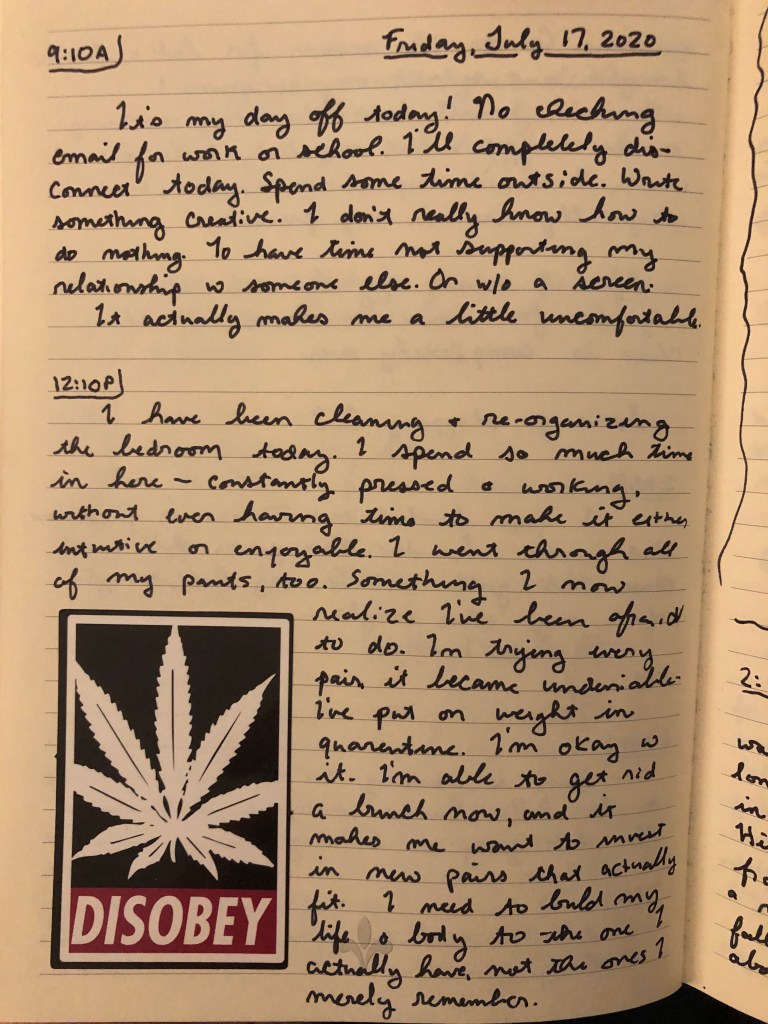 9:10A
Friday, July 17, 2020
It's my day off today! No checking
email for work or school. I'll completely dis-
connect today. Spend some time outside. Write
something creative. I don't really know how to
do nothing. To have time not supporting my
relationship w someone else. Or w/o a screen.
It actually makes me a little uncomfortable.
12:10P
I have been cleaning + re-organizing
the bedroom today. I spend so much time
in here – constantly pressed & working,
without ever having time to make it either
intuitive or enjoyable. I went through all
of my pants, too. Something I now
realize I've been afraid
to do. In trying every
pair, it became undeniable.
I've put on weight in
quarentine. I'm okay w
it. I'm able to get rid
a bunch now, and it
makes me want to invest
in new pairs that actually
fit. I need to build my
life & body to the one I
actually have, not the ones I
merely remember.
DISOBEY
2:
wa
lon
in
Hi
fro
a
fall
abo